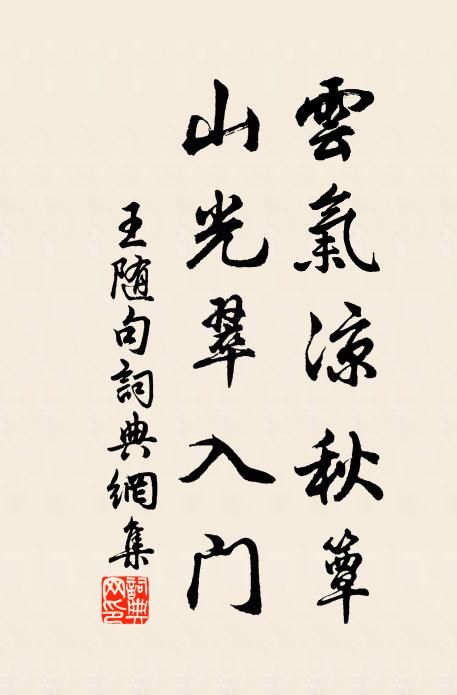 雲氣涼秋簟
山光翠入门
王随句詞典網集
詞典网印